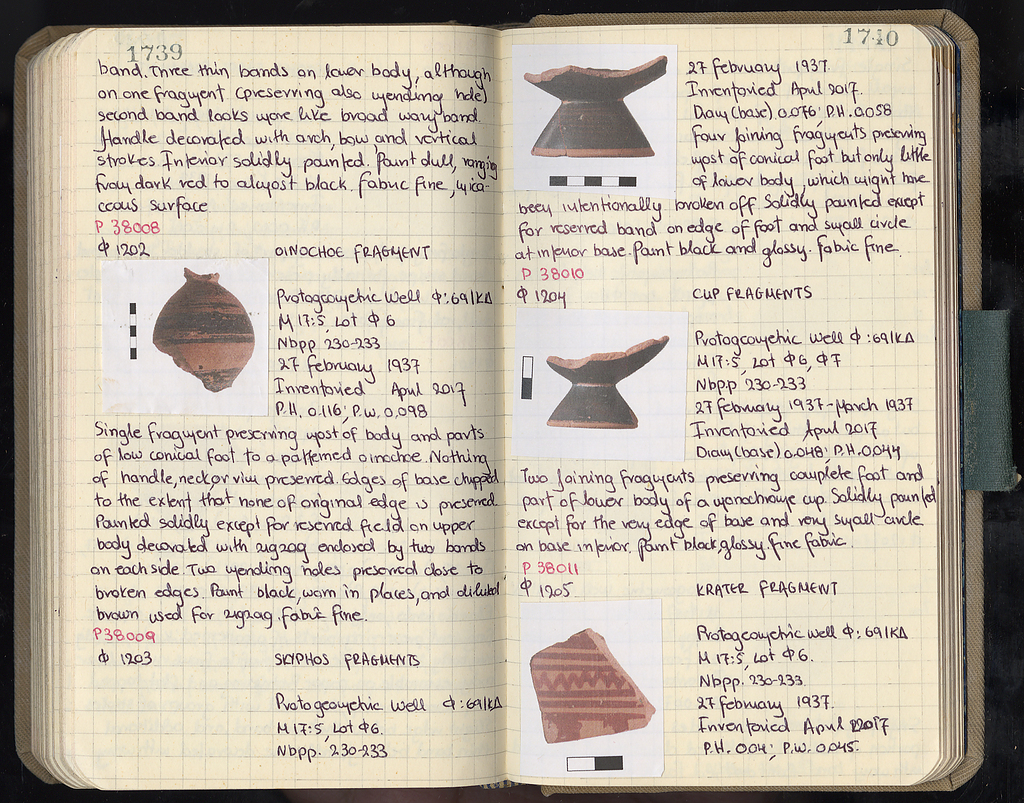 1739
band. Three thin bands on lower body, although
on one fragment (preserving also mending hole)
second band looks more like broad wavy band.
Handle decorated with arch, bow, and vertical
strokes. Interior solidly painted. Paint dull, ranging
from dark red to almost black. Fabric fine, mica-
ceous surface
P 38008
Φ 1202 OINOCHOE FRAGMENT
Protogeometric Well Φ:69/ΚΔ
M 17:5, Lot Φ6
Nbpp 230-233
27 February 1937
Inventoried April 2017
P.H. 0.116; P.W. 0,098
Single fragment preserving most of body and parts
of low conical foot to a patterned oinochoe. Nothing
of handle, neck or rim preserved. Edges of base chipped
to the extent that none of original edge is preserved.
Painted solidly except for reserved field on upper
body decorated with zigzag enclosed by two bands
on each side. Two mending holes preserved close to
broken edges. Paint black, worn in places, and diluted
brown used for zigzag. Fabric fine.
P38009
Φ 1203 SKYPHOS FRAGMENTS
Protogeometric Well Φ:69/ΚΔ
M 17:5, Lot Φ6.
Nbpp. 230-233
1740
27 February 1937
Inventoried April 2017.
Diam (base) 0.076; P.H. 0.058
Four joining fragments preserving
most of conical foot but only little
of lower body, which might have
been intentionally broken off. Solidly painted except
for reserved band on edge of foot and small circle
at interior base. Paint black and glossy. Fabric fine.
P 38010
Φ 1204 CUP FRAGMENTS
Protogeometric Well Φ:69/ΚΔ
M 17:5, Lot Φ6, Φ7
Nbpp 230-233
27 February 1937-March 1937
Inventoried April 2017
Diam (base) 0.048; P.H. 0.044
Two joining fragments preserving complete foot and
part of lower body of a monochrome cup. Solidly painted
except for the very edge of base and very small circle
on base interior. Paint black, glossy. Fine fabric.
P 38011
Φ 1205 KRATER FRAGMENT
Protogeometric Well Φ:69/ΚΔ
M 17:5, Lot Φ6.
Nbpp. 230-233
27 February 1937.
Inventoried April 2017
P.H. 0.04; P.W. 0.045.